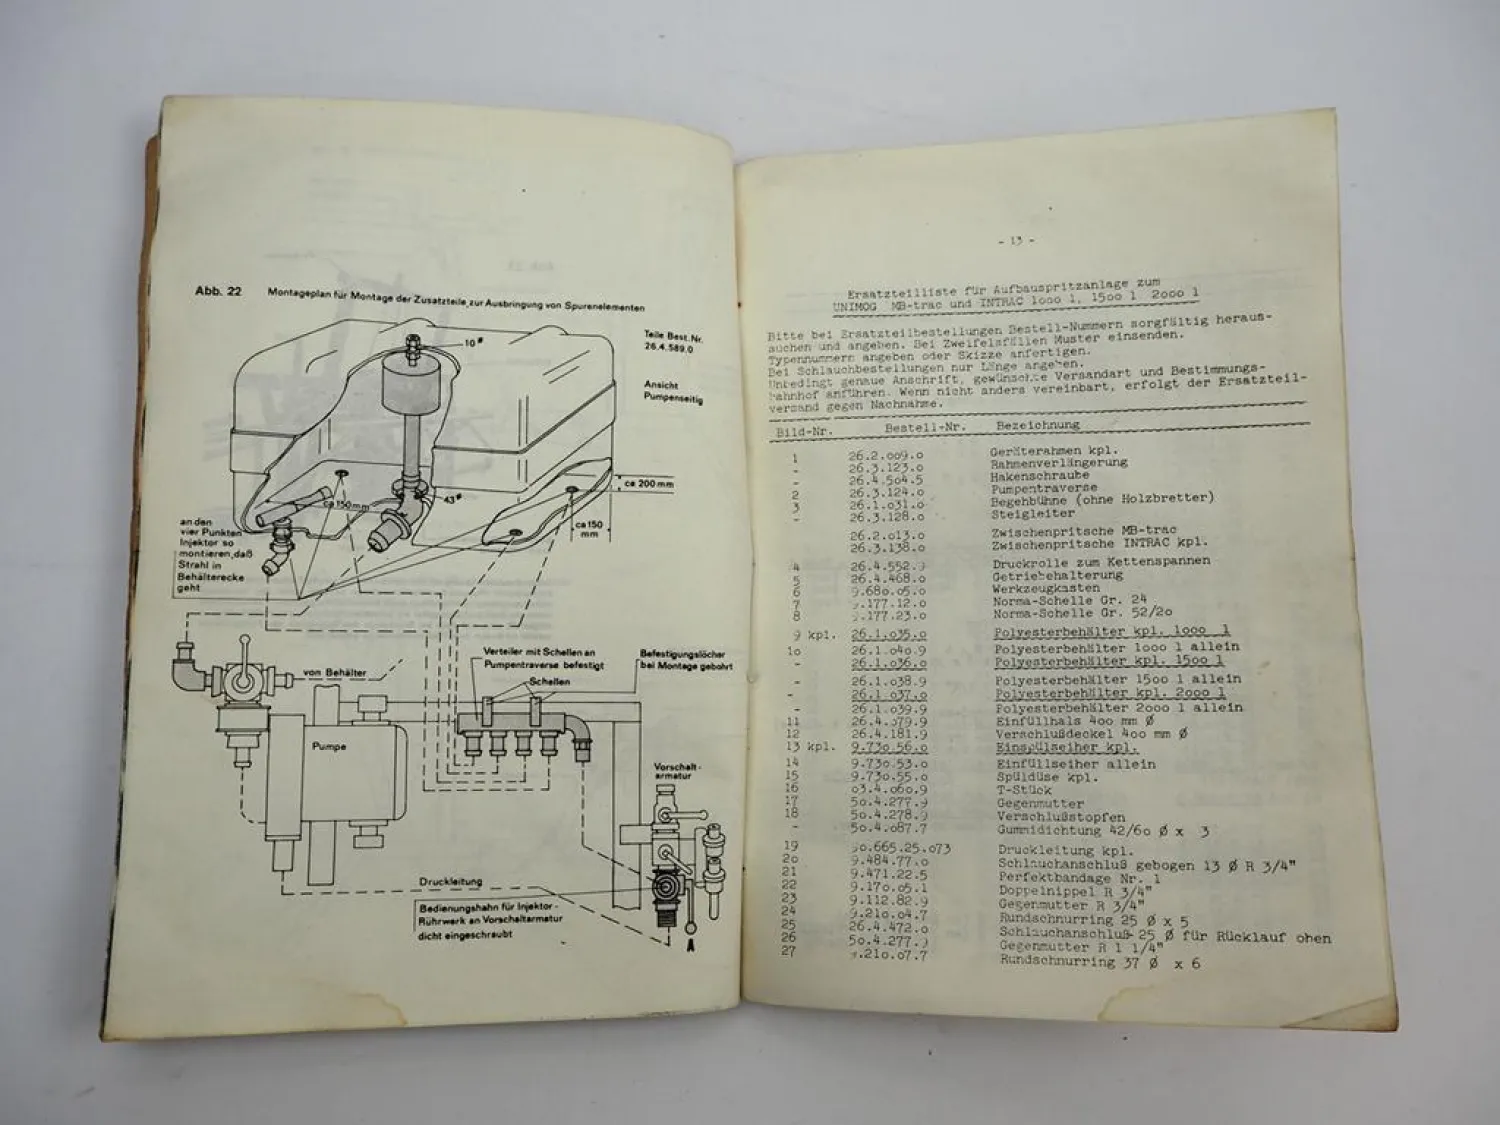 Abb. 22 Montageplan für Montage der Zusatzteile zur Ausbringung von Spurenelementen
Teile Best. Nr.
26.4.589.0
Ansicht
Pumpenseitig
10 ø
43 ø
ca 150mm
ca 200 mm
ca 150
mm
an den
vier Punkten
Injektor so
montieren,daß
Strahl in
Behälterecke
geht
von Behälter
Verteiler mit Schellen an
Pumpentraverse befestigt
Schellen
Befestigungslöcher
bei Montage gebohrt
Pumpe
Vorschalt-
armatur
Druckleitung
Bedienungshahn für Injektor-
Rührwerk an Vorschaltarmatur
dicht eingeschraubt
A
- 13 -
Ersatzteilliste für Aufbauspritzanlage zum
UNIMOG MB-trac und INTRAC 1ooo l, 15oo l 2ooo l
Bitte bei Ersatzteilbestellungen Bestell-Nummern sorgfältig heraus-
suchen und angeben. Bei Zweifelsfällen Muster einsenden.
Typennummern angeben oder Skizze anfertigen.
Bei Schlauchbestellungen nur Länge angeben.
Unbedingt genaue Anschrift, gewünschte Versandart und Bestimmungs-
bahnhof anführen. Wenn nicht anders vereinbart, erfolgt der Ersatzteil-
versand gegen Nachnahme.
Bild-Nr. Bestell-Nr. Bezeichnung
1 26.2.oo9.o Geräterahmen kpl.
- 26.3.123.o Rahmenverlängerung
- 26.4.5o4.5 Hakenschraube
2 26.3.124.o Pumpentraverse
3 26.1.o31.o Begehbühne (ohne Holzbretter)
- 26.3.128.o Steigleiter
26.2.o13.o Zwischenpritsche MB-trac
26.3.138.o Zwischenpritsche INTRAC kpl.
4 26.4.552. Druckrolle zum Kettenspannen
5 26.4.468.o Getriebehalterung
6 9.68o.o5.o Werkzeugkasten
7 .177.12.o Norma-Schelle Gr. 24
8 .177.23.o Norma-Schelle Gr. 52/2o
9 kpl. 26.1.o35.o Polyesterbehälter kpl. 1ooo l
1o 26.1.o4o.9 Polyesterbehälter 1ooo l allein
- 26.1.o36.o Polyesterbehälter kpl. 15oo l
- 26.1.o38.9 Polyesterbehälter 15oo l allein
- 26.1.o37.o Polyesterbehälter kpl. 2ooo l
- 26.1.o39.9 Polyesterbehälter 2ooo l allein
11 26.4.o79.9 Einfüllhals 4oo mm Ø
12 26.4.181.9 Verschlußdeckel 4oo mm Ø
13 kpl. 9.73o.56.o Einspülseiher kpl.
14 9.73o.53.o Einfüllseiher allein
15 9.73o.55.o Spüldüse kpl.
16 o3.4.o6o.9 T-Stück
17 5o.4.277.9 Gegenmutter
18 5o.4.278.9 Verschlußstopfen
- 5o.4.o87.7 Gummidichtung 42/6o Ø x 3
19 9o.665.25.o73 Druckleitung kpl.
2o 9.484.77.o Schlauchanschluß gebogen 13 Ø R 3/4"
21 9.471.22.5 Perfektbandage Nr. 1
22 9.17o.o5.1 Doppelnippel R 3/4"
23 9.112.82.9 Gegenmutter R 3/4"
24 9.21o.o4.7 Rundschnurring 25 Ø x 5
25 26.4.472.o Schlauchanschluß 25 Ø für Rücklauf oben
26 5o.4.277. Gegenmutter R 1 1/4"
27 .21o.o7.7 Rundschnurring 37 Ø x 6